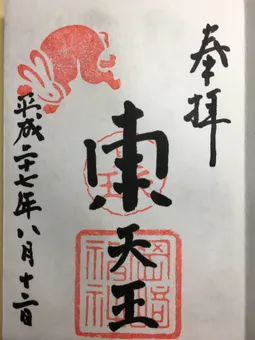 奉拝
東天王
岡崎
神社
平成二十七年八月十二日